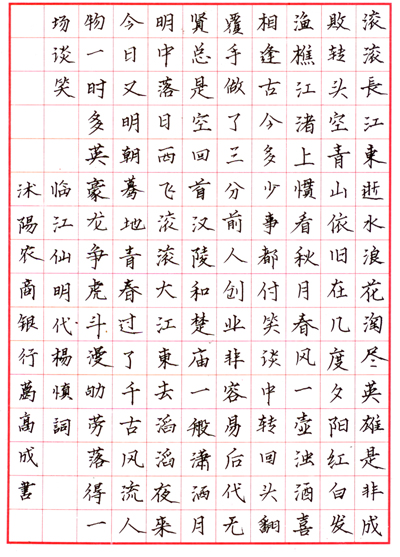 滚滚長江東逝水浪花淘尽英雄是非成
敗转头空青山依旧在几度夕阳红白发
渔樵江渚上惯看秋月春风一壶浊酒喜
相逢古今多少事都付笑谈中转回头翻
覆手做了三分前人创业非容易后代无
贤总是空回首汉陵和楚庙一般潇洒月
明中落日西飞滚滚大江東去滔滔夜来
今日又明朝蓦地青春过了千古风流人
物一时多英豪龙争虎斗漫劬劳落得一
场谈笑 临江仙明代楊慎詞
沭陽农商银行萬高成書